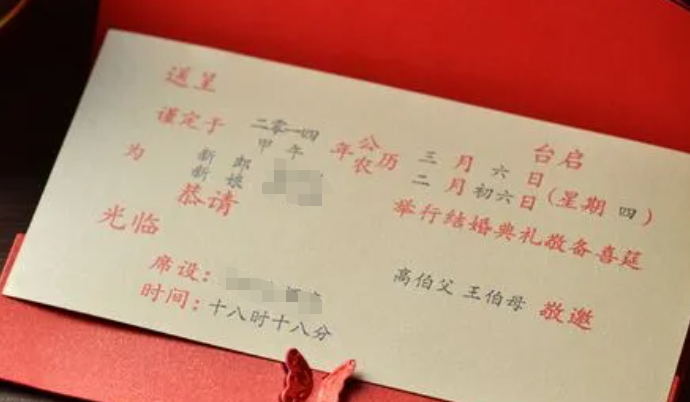 送呈 台启
谨定于 二零一四 年 公历 三月六日
甲午 农 二月初六日(星期四)
为 新郎
新娘 举行结婚典礼敬备喜筵
恭请
光临 高伯父 王伯母 敬邀
席设:
时间:十八时十八分